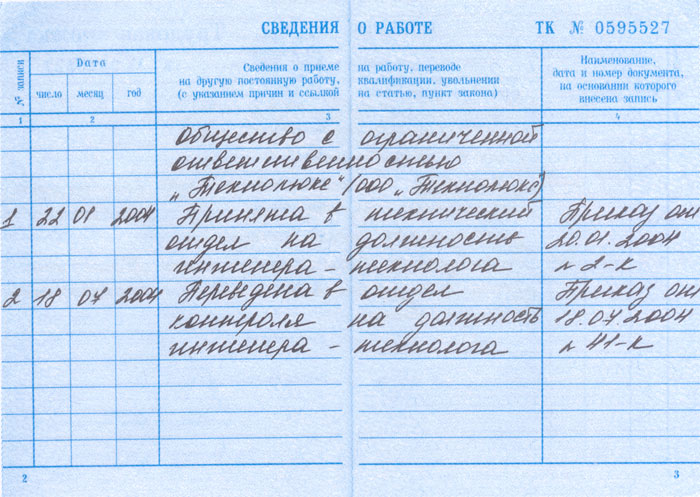 СВЕДЕНИЯ О РАБОТЕ ТК № 0595527
№ записи
Дата
число месяц год
Сведения о приеме на работу, переводе
на другую постоянную работу, квалификации, увольнении
(с указанием причин и ссылкой на статью, пункт закона)
Наименование,
дата и номер документа,
на основании которого
внесена запись
1 2 3 4
общество с ограниченной
ответственностью
„Технолюкс“ (ООО „Технолюкс“)
1 22 01 2004 Принята в технический Приказ от
отдел на должность 20.01.2004
инженера – технолога № 2-к
2 18 07 2004 Переведена в отдел Приказ от
контроля на должность 18.07.2004
инженера – технолога № 41-к
2 3